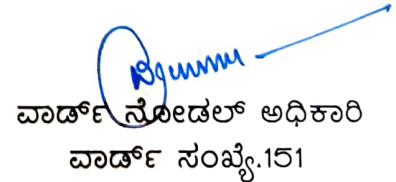 ವಾರ್ಡ್ ನೋಡಲ್ ಅಧಿಕಾರಿ
ವಾರ್ಡ್ ಸಂಖ್ಯೆ.151